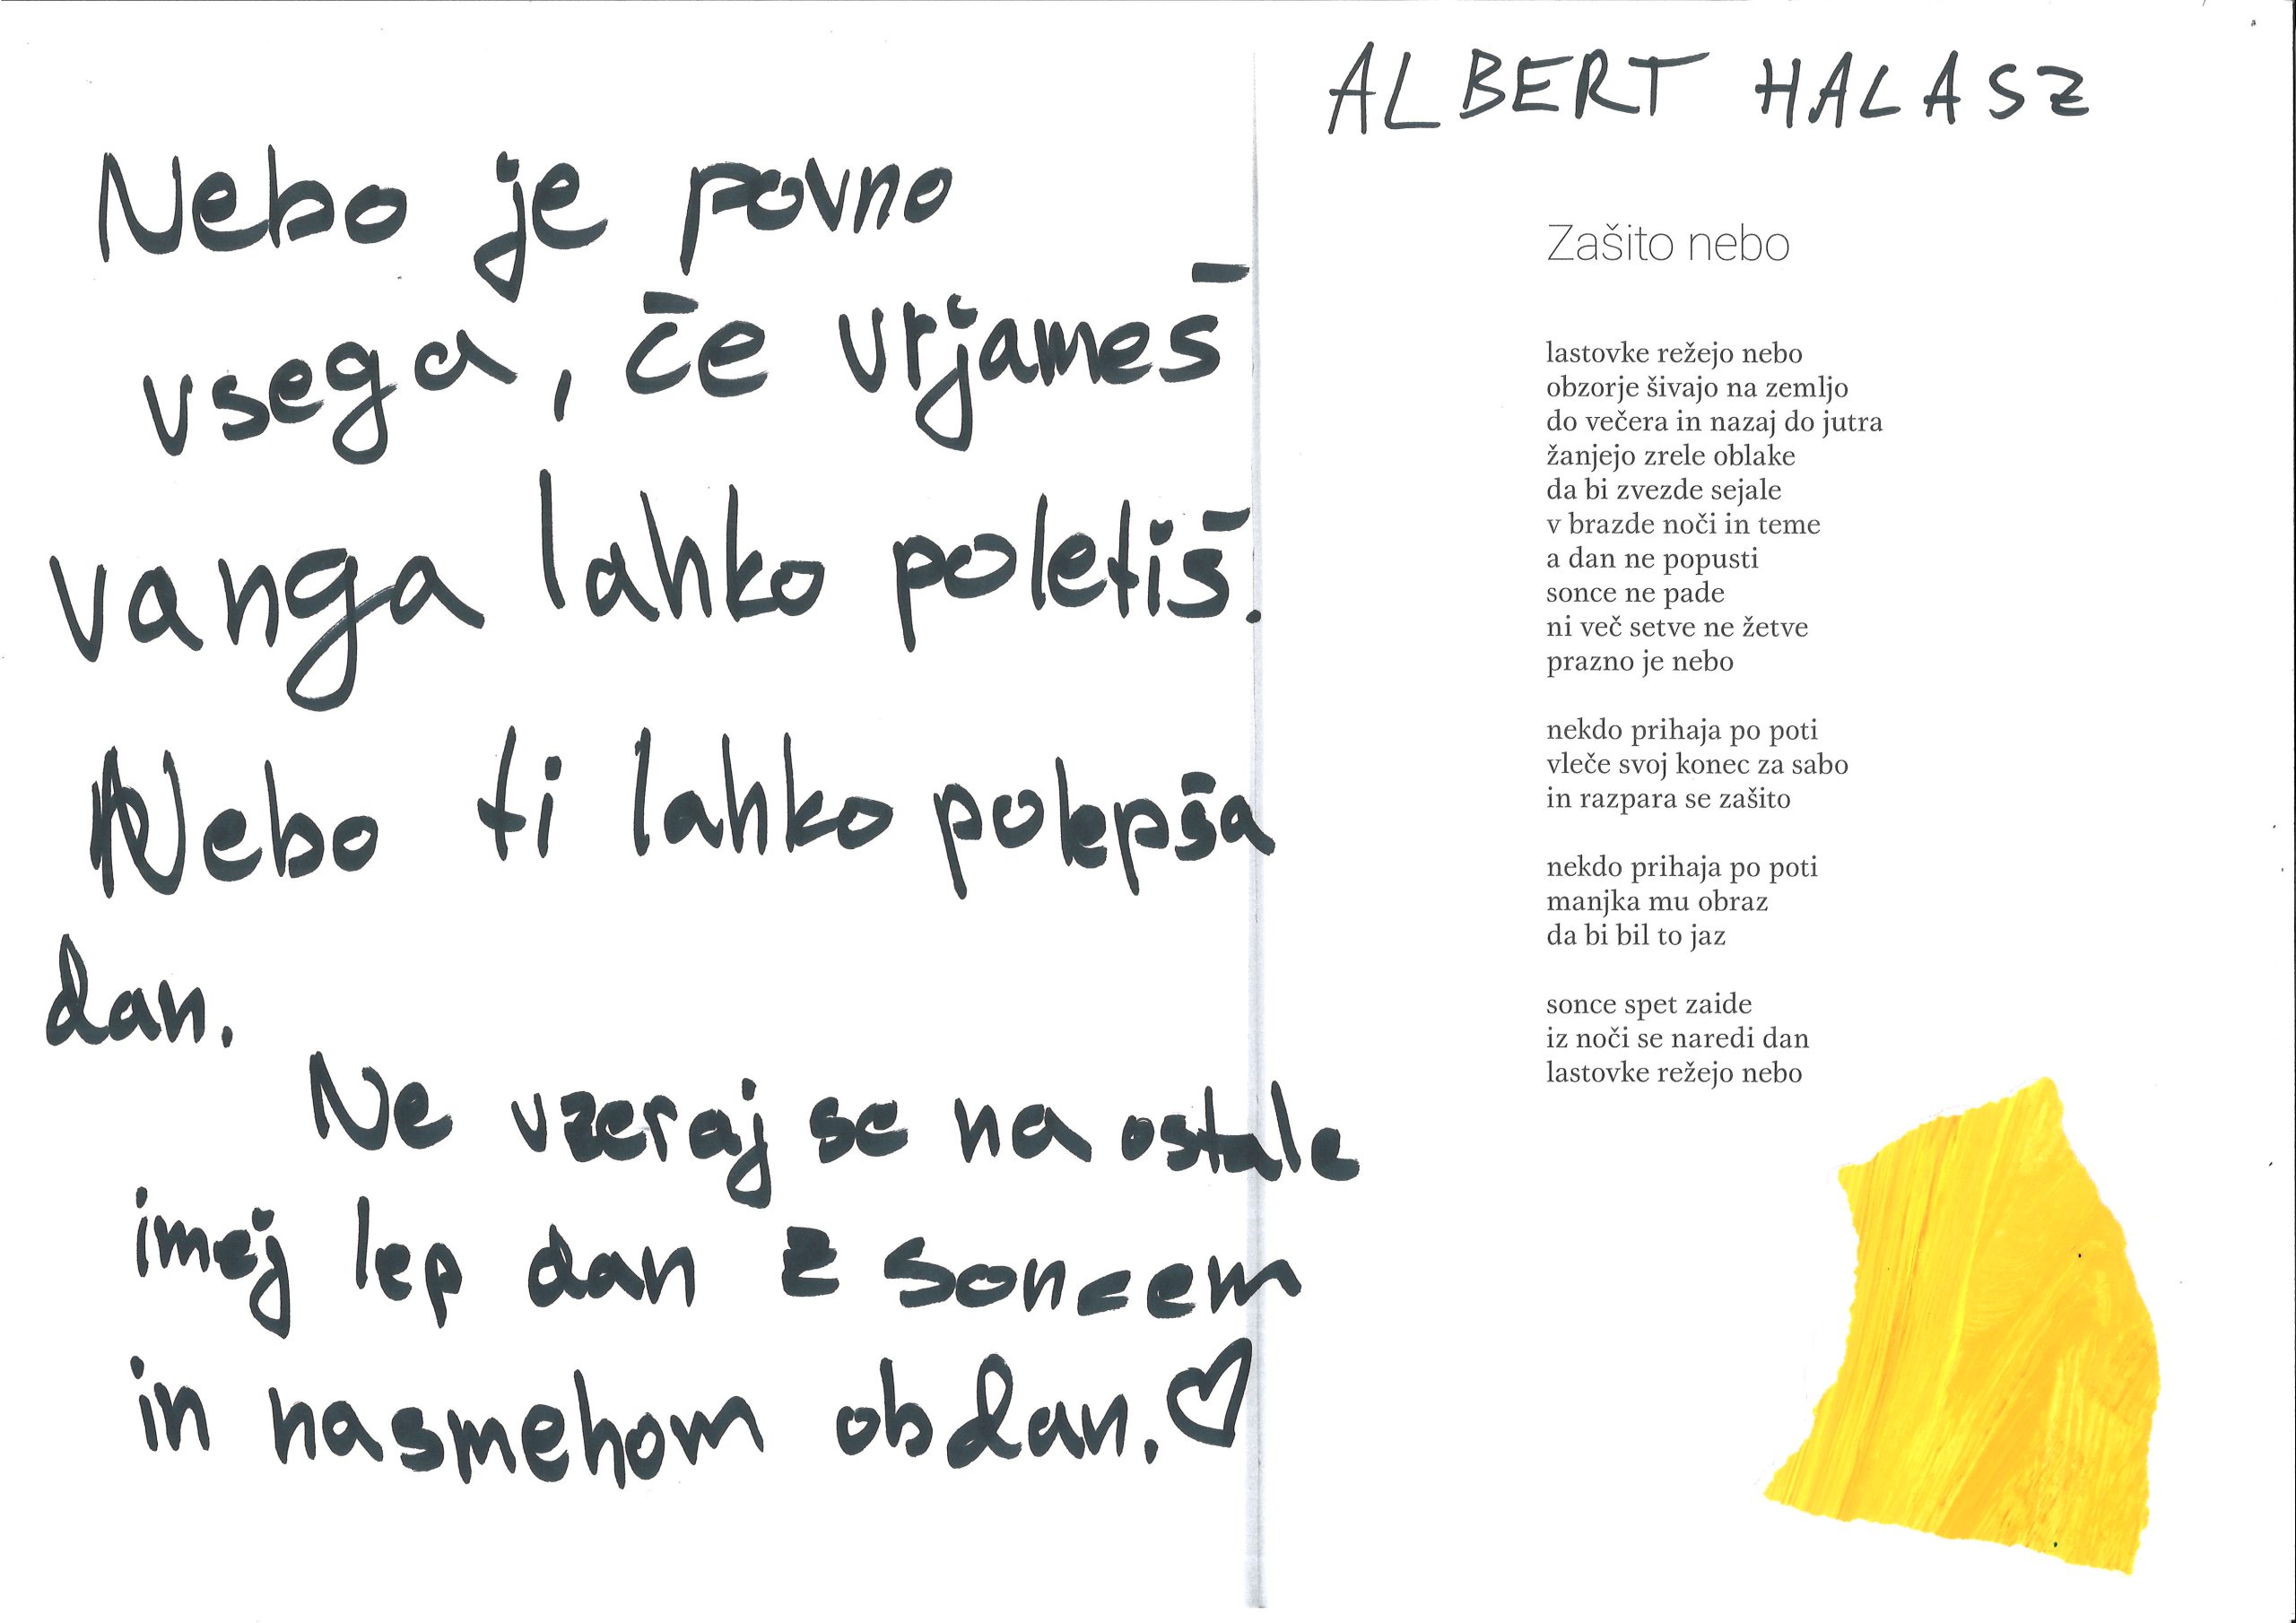 Nebo je povno
vsega, če vrjameš
vanga lahko poletiš.
Nebo ti lahko polepša
dan.
Ne vzeraj se na ostale
imej lep dan z soncem
in nasmehom obdan.♡
ALBERT HALASZ
Zašito nebo
lastovke režejo nebo
obzorje šivajo na zemljo
do večera in nazaj do jutra
žanjejo zrele oblake
da bi zvezde sejale
v brazde noči in teme
a dan ne popusti
sonce ne pade
ni več setve ne žetve
prazno je nebo
nekdo prihaja po poti
vleče svoj konec za sabo
in razpara se zašito
nekdo prihaja po poti
manjka mu obraz
da bi bil to jaz
sonce spet zaide
iz noči se naredi dan
lastovke režejo nebo